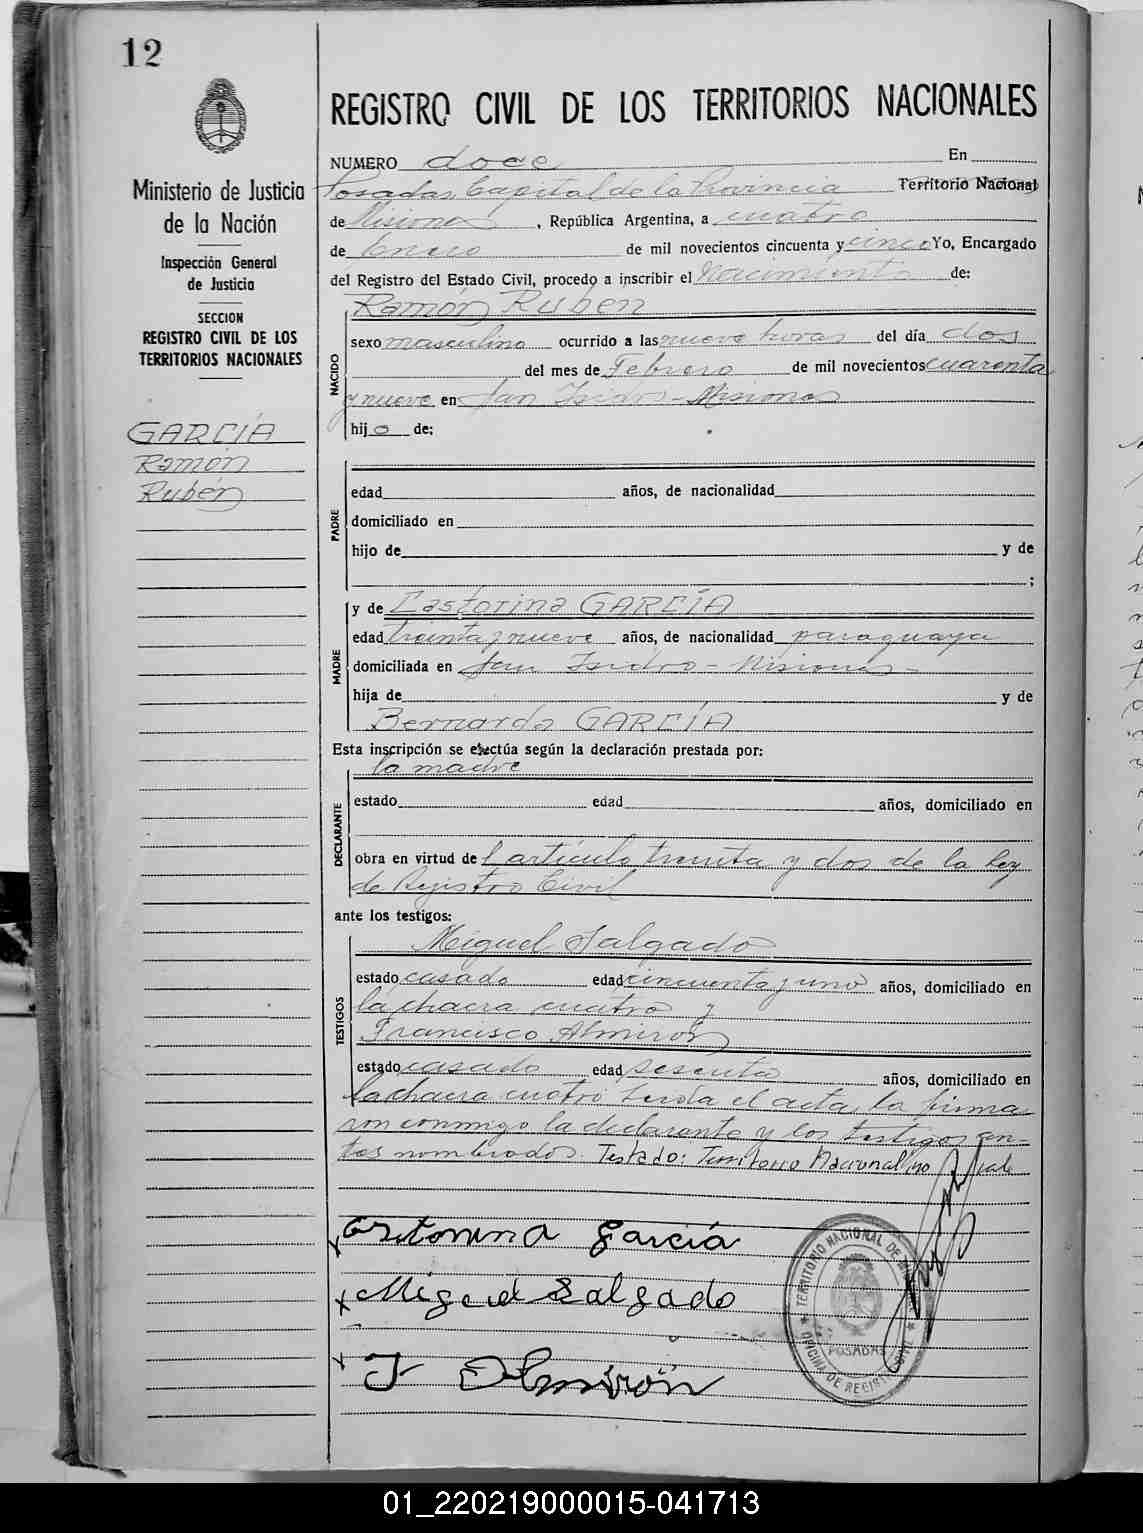 12
Ministerio de Justicia
de la Nación
Inspección General
de Justicia
SECCION
REGISTRO CIVIL DE LOS
TERRITORIOS NACIONALES
GARCÍA
Ramón
Rubén
REGISTRO CIVIL DE LOS TERRITORIOS NACIONALES
NUMERO doce En
Posadas, Capital de la Provincia Territorio Nacional
de Misiones, República Argentina, a cuatro
de Enero de mil novecientos cincuenta y cinco Yo, Encargado
del Registro del Estado Civil, procedo a inscribir el Nacimiento de:
NACIDO
Ramón Rubén
sexo masculino ocurrido a las nueve horas del día dos
del mes de Febrero de mil novecientos cuarenta
y nueve en San Isidro - Misiones
hijo de:
PADRE
edad años, de nacionalidad
domiciliado en
hijo de y de
;
MADRE
y de Castorina GARCÍA
edad treinta y nueve años, de nacionalidad paraguaya
domiciliada en San Isidro - Misiones -
hija de y de
Bernarda GARCÍA
Esta inscripción se efectúa según la declaración prestada por:
DECLARANTE
la madre
estado edad años, domiciliado en
obra en virtud del artículo treinta y dos de la Ley
de Registro Civil
ante los testigos:
TESTIGOS
Miguel Salgado
estado casado edad cincuenta y uno años, domiciliado en
la chacra cuatro y
Francisco Almirón
estado casado edad sesenta años, domiciliado en
la chacra cuatro Leída el acta, la firma
ron conmigo la declarante y los testigos an-
tes nombrados. Testado: Territorio Nacional no vale
Castorina García
x Miguel Salgado
x F Almirón
TERRITORIO NACIONAL DE MISIONES
POSADAS
OFICINA DE REGISTRO CIVIL
01_220219000015-041713